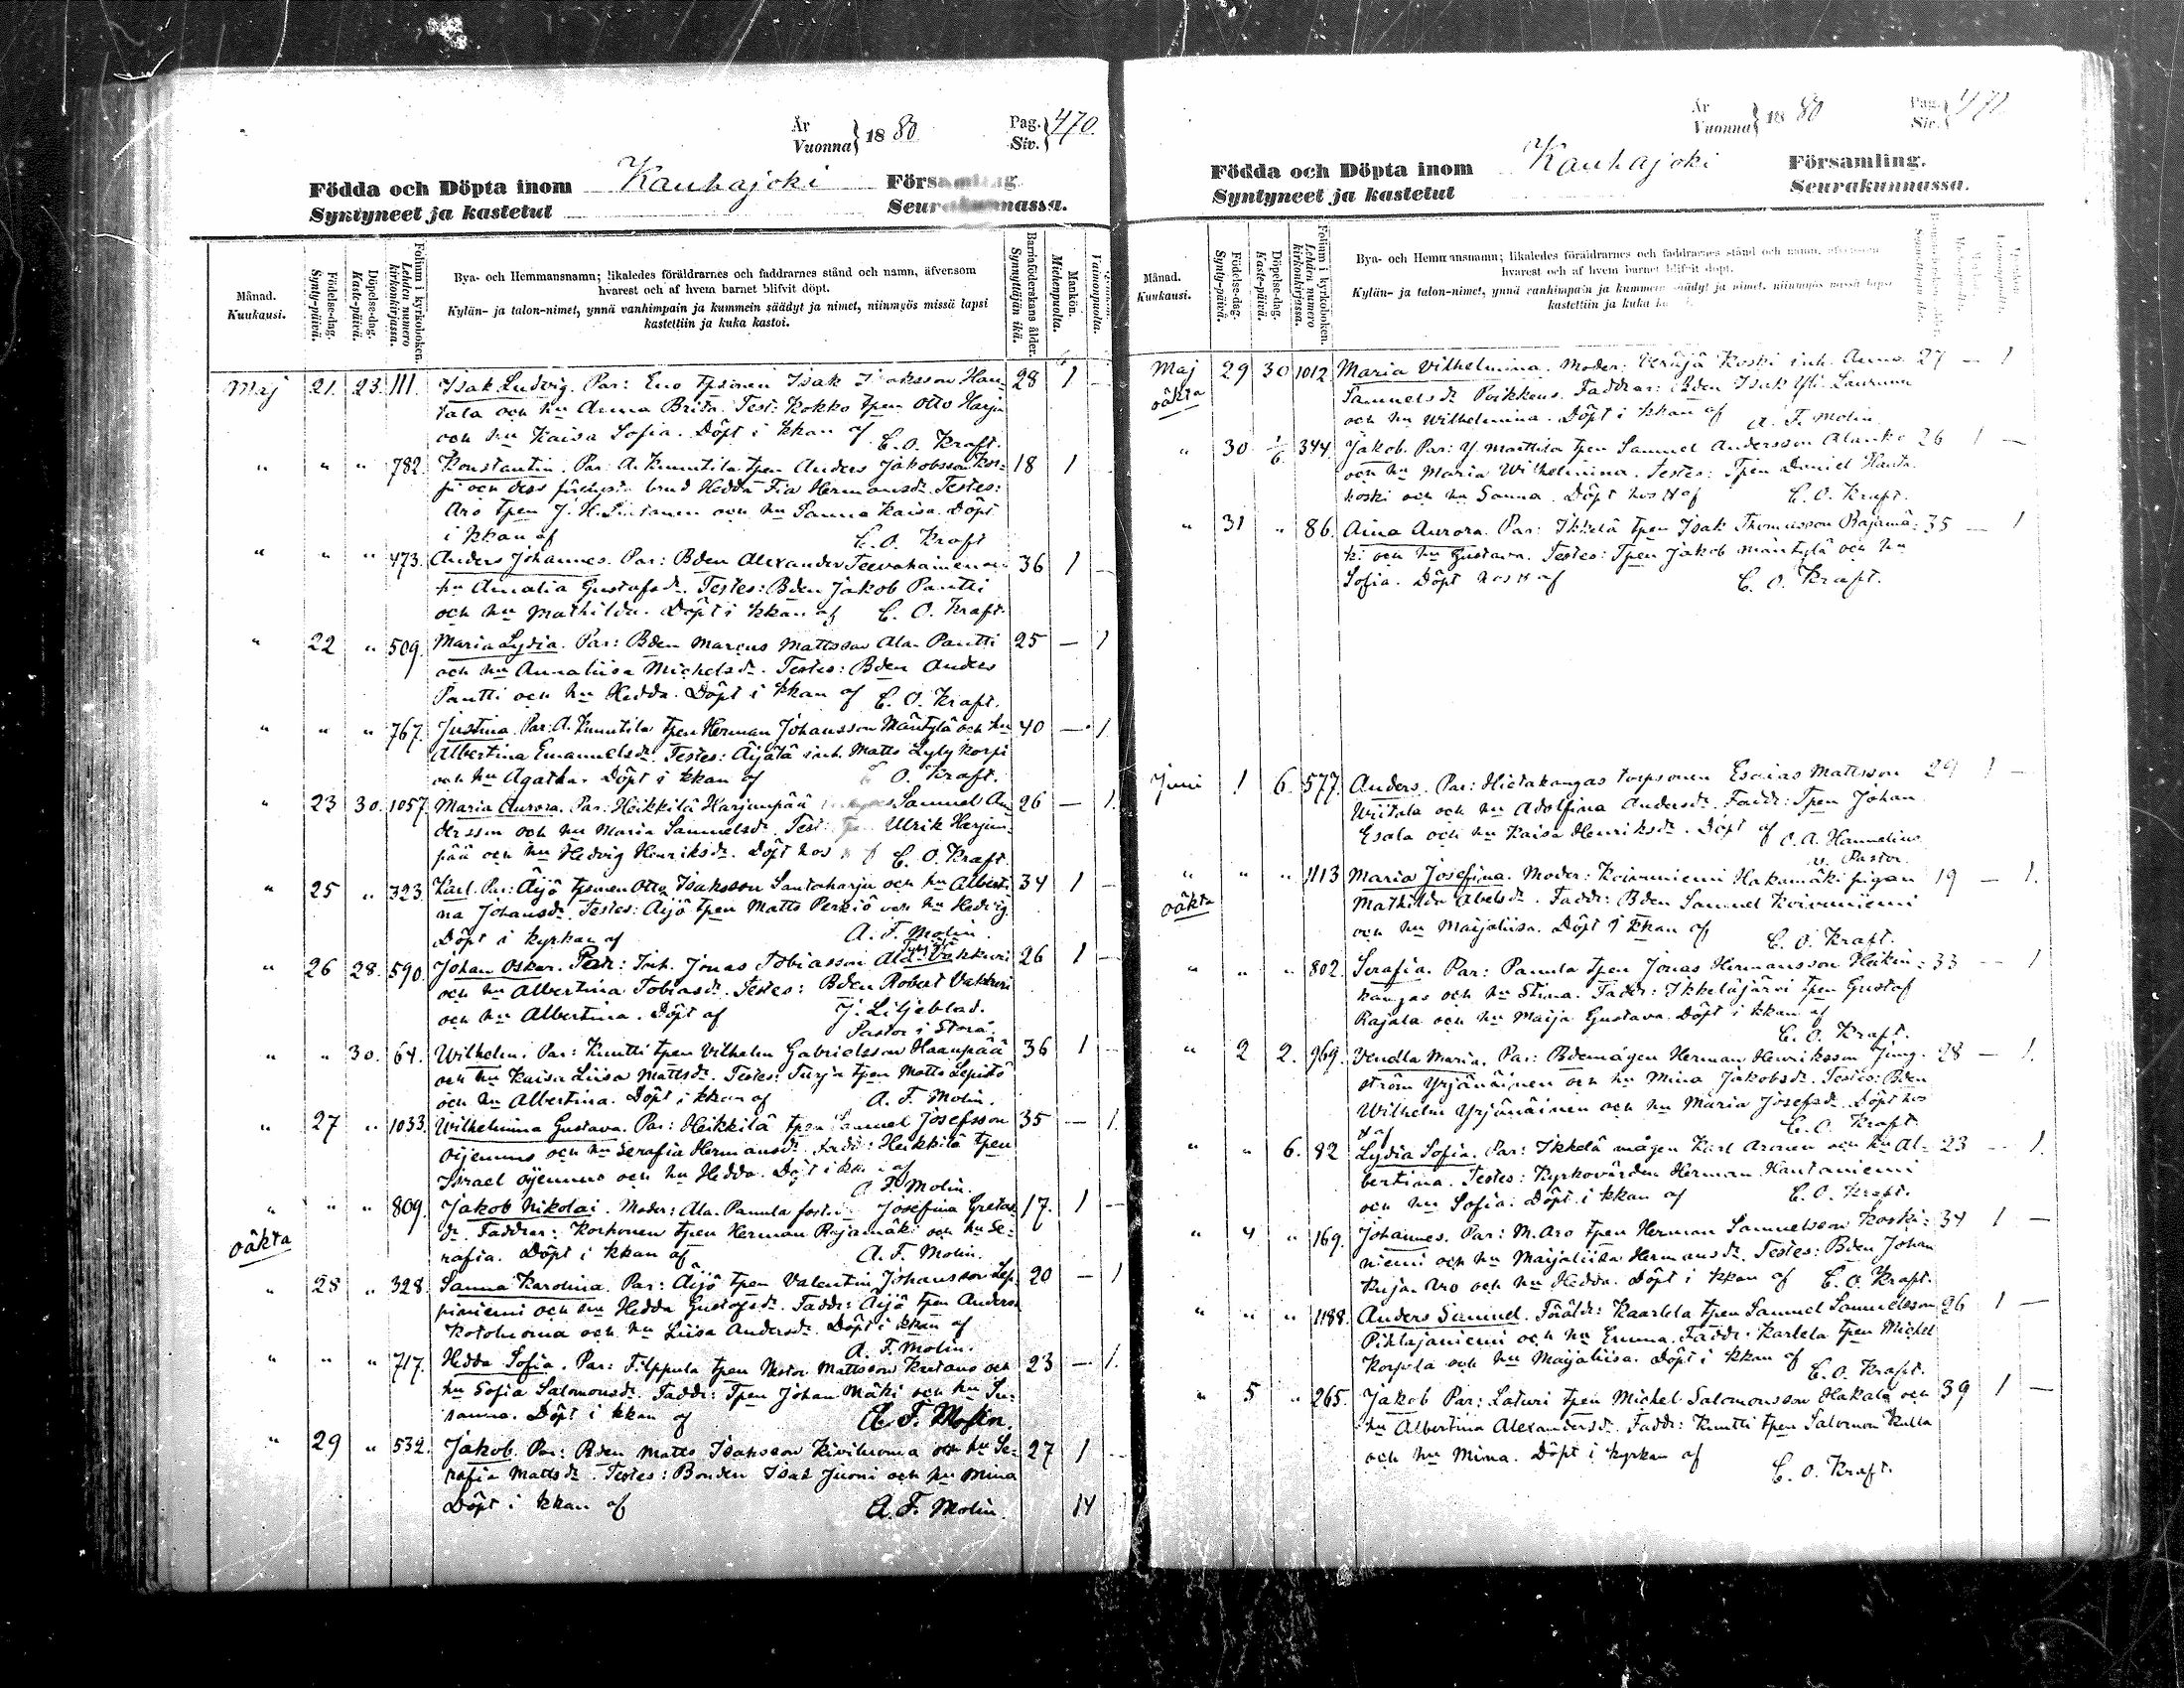 År
Vuonna } 18 80
Pag.
Siv. } 470.
Födda och Döpta inom Kauhajoki Församling
Syntyneet ja kastetut Seurakunnassa.
Månad.
Kuukausi.
Födelse-dag.
Synty-päivä.
Döpelse-dag.
Kaste-päivä.
Folium i kyrkoboken.
Lehden numero
kirkonkirjassa.
Bya- och Hemmansnamn; likaledes föräldrarnes och faddrarnes stånd och namn, äfvensom
hvarest och af hvem barnet blifvit döpt.
Kylän- ja talon-nimet, ynnä vanhimpain ja kummein säädyt ja nimet, niinmyös missä lapsi
kastettiin ja kuka kastoi.
Barnaföderskans ålder.
Synnyttäjän ikä.
Mankön.
Miehenpuolta.
Vaimonpuolta.
Maj 21. 23. 111. Isak Ludvig. Par: Eno tpsonen Isak Isaksson Hau- 28 1 –
tala och hu Anna Brita. Test: Kokko tpen Otto Harju
och hu Kaisa Sofia. Döpt i kkan af C. O. Kraft.
" " " 782. Konstantin. Par: A. Knuutila tpen Anders Jakobsson Kor- 18 1
pi och dess brud Hedda Fia Hermansdr. Testes:
Aro tpen J. H. och hu Sanna Kaisa. Döpt
i kkan af C. O. Kraft
" " " 473. Anders Johannes. Par: Bden Alexander 36 1 –
hu Amalia Gustafsdr. Testes: Bden Jakob Pantti
och hu Mathilda. Döpt i kkan af C. O. Kraft.
" 22 " 509. Maria Lydia. Par: Bden Marcus Mattsson Ala-Pantti 25 – 1
och hu Annaliisa Michelsdr. Testes: Bden Anders
Pantti och hu Hedda. Döpt i kkan af C. O. Kraft.
" " " 767. Justina. Par: A. Knuutila tpen Herman Johansson Mäntylä och hu 40 – 1.
Albertina Emanuelsdr. Testes: Äijälä inh. Matts Lylykorpi
och hu Agatha. Döpt i kkan af C. O. Kraft.
" 23 30. 1057. Maria Aurora. Par: Heikkilä Harjunpää Samuel An- 26 – 1.
dersson och hu Maria Samuelsdr. Test: tpen Ulrik Harjun-
pää och hu Hedvig Henriksdr. Döpt hos C. O. Kraft.
" 25 " 323. Karl. Par: Äijö tpsonen Otto Isaksson Santaharju och hu Alberti- 34 1 –
na Johansdr. Testes: Äijö tpen Matts Perkiö och hu Hedvig.
Döpt i kyrkan af A. F. Molin.
" 26 28. 590. Johan Oskar. Par: Inh. Jonas Tobiasson Vakkuri 26 1 –
och hu Albertina Tobiasdr. Testes: Bden Robert Vakkuri
och hu Albertina. Döpt af J. Liljeblad.
Pastor i Storå.
" " 30. 64. Wilhelm. Par: Knutti tpen Vilhelm Gabrielsson Haanpää 36 1 –
och hu Kaisa Liisa Mattsdr. Testes: Turja tpen Matts Lepistö
och hu Albertina. Döpt i kkan af A. F. Molin.
" 27 " 1033. Wilhelmina Gustava. Par: Heikkilä tpen Samuel Josefsson 35 – 1.
Ojennus och hu Serafia Hermansdr. Fadd: Heikkilä tpen
Israel Ojennus och hu Hedda. Döpt i kkan af
A. F. Molin.
" " " 809. Jakob Nikolai. Moder: Ala-Panula Josefina Gretas- 17. 1 –
oäkta dr. Faddrar: Korhonen tpen Herman Rajamäki och hu Se-
rafia. Döpt i kkan af A. F. Molin.
" 28 " 328. Sanna Karolina. Par: Äijö tpen Valentin Johansson Lep- 20 – 1
piniemi och hu Hedda Gustafsdr. Faddr: Äijö tpen Anders
Kotoluoma och hu Liisa Andersdr. Döpt i kkan af
A. F. Molin.
" " " 717. Hedda Sofia. Par: Filppula tpen Nestor Mattsson och 23 – 1.
hu Sofia Salomonsdr. Faddr: Tpen Johan Mäki och hu Su-
sanna. Döpt i kkan af A. F. Molin.
" 29 " 532. Jakob. Par: Bden Matts Isaksson Kiviluoma och hu Se- 27 1 –
rafia Mattsdr. Testes: Bonden Isak Juoni och hu Mina
Döpt i kkan af A. F. Molin. 14
År
Vuonna } 18 80
Pag.
Siv. } 471
Födda och Döpta inom Kauhajoki Församling.
Syntyneet ja kastetut Seurakunnassa.
Månad.
Kuukausi.
Födelse-dag.
Synty-päivä.
Döpelse-dag.
Kaste-päivä.
Folium i kyrkoboken.
Lehden numero
kirkonkirjassa.
Bya- och Hemmansnamn; likaledes föräldrarnes och faddrarnes stånd och namn, äfvensom
hvarest och af hvem barnet blifvit döpt.
Kylän- ja talon-nimet, ynnä vanhimpain ja kummein säädyt ja nimet, niinmyös missä lapsi
kastettiin ja kuka
Maj 29 30 1012 Maria Vilhelmina. Moder: Koski inh. Anna 27 – 1
oäkta Samuelsdr Poikkeus. Faddrar: Bden Isak Yli-Lauruna
och hu Wilhelmina. Döpt i kkan af A. F. Molin
" 30 1/6. 344 Jakob. Par: Y. Mattila tpen Samuel Andersson Alanko 26 1 –
och hu Maria Wilhelmina. Testes: Tpen Daniel Hauta-
koski och hu Sanna. Döpt hos af C. O. Kraft.
" 31 " 86. Aina Aurora. Par: Ikkelä tpen Isak Thomasson Rajamä- 35 – 1
ki och hu Gustava. Testes: Tpen Jakob Mäntylä och hu
Sofia. Döpt hos af C. O. Kraft.
Juni 1 6. 577. Anders. Par: Hietakangas torpsonen Esaias Mattsson 29 1 –
Uiitala och hu Adolfina Andersdr. Faddr: Tpen Johan
Esala och hu Kaisa Henriksdr. Döpt af C. A. Hannelius
v. Pastor.
" " " 1113 Maria Josefina. Moder: Koivuniemi Hakamäki pigan 19 – 1.
oäkta Mathilda Abelsdr. Faddr: Bden Samuel Koivuniemi
och hu Maijaliisa. Döpt i kkan af
C. O. Kraft.
" " " 802. Serafia. Par: Panula tpen Jonas Hermansson 33 – 1
kangas och hu Stina. Faddr: Ikkeläjärvi tpen Gustaf
Rajala och hu Maija Gustava. Döpt i kkan af
C. O. Kraft.
" 2 2. 969. Vendla Maria. Par: Bdemågen Herman Henriksson Ljung- 28 – 1.
ström Yrjänäinen och hu Mina Jakobsdr. Testes: Bden
Wilhelm Yrjänäinen och hu Maria Josefsdr. Döpt hos
af C. O. Kraft.
" " 6. 82 Lydia Sofia. Par: Ikkelä mågen Karl Aronen och hu Al- 23 – 1.
bertina. Testes: Kyrkovärden Herman Hautaniemi
och hu Sofia. Döpt i kkan af C. O. Kraft.
" 4 " 169. Johannes. Par: M. Aro tpen Herman Samuelsson Koski- 34 1 –
niemi och hu Maijaliisa Hermansdr. Testes: Bden Johan
Kujan Aro och hu Hedda. Döpt i kkan af C. O. Kraft.
" " " 1188. Anders Samuel. Föräldr: Kaarlela tpen Samuel Samuelsson 26 1 –
Pihlajaniemi och hu Emma. Faddr: Karlela tpen Michel
Korpela och hu Maijaliisa. Döpt i kkan af C. O. Kraft.
" 5 " 265. Jakob Par: Laturi tpen Michel Salomonsson Hakala och 39 1 –
hu Albertina Alexandersdr. Faddr: Knutti tpen Salomon Kulla
och hu Mina. Döpt i kyrkan af
C. O. Kraft.